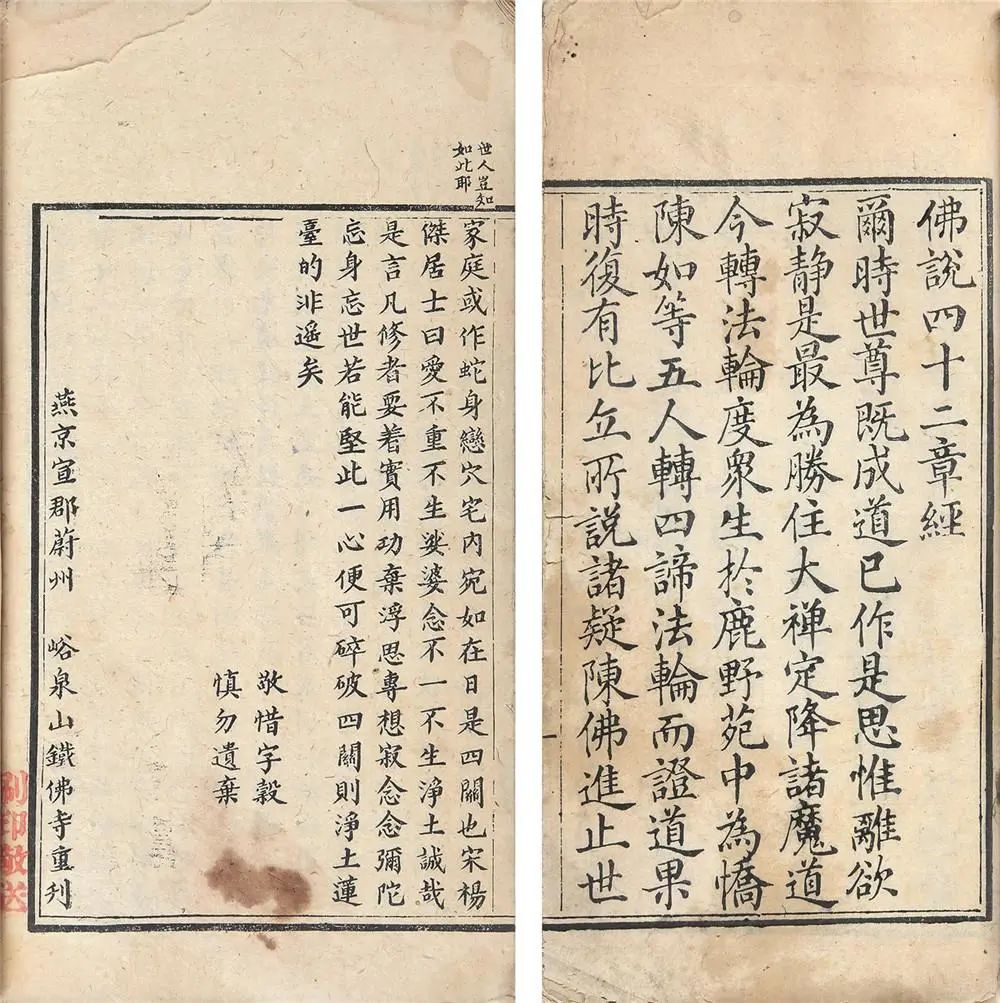 佛説四十二章經
爾時世尊既成道已作是思惟離欲
寂静是最為勝住大禅定降諸魔道
今轉法輪度衆生於鹿野苑中為憍
陳如等五人轉四諦法輪而證道果
時復有比丘所説諸疑陳佛進止世
世人豈知
如此耶
家庭或作蛇身戀穴宅内宛如在日是四關也宋楊
傑居士曰愛不重不生娑婆念不一不生淨土誠哉
是言凡修者要着實用功棄浮思專想寂念念彌陀
忘身忘世若能堅此一心便可碎破四關則淨土蓮
臺的非遥矣
敬惜字穀
慎勿遺棄
燕京宣郡蔚州 峪泉山鐵佛寺重刋
刷印敬送